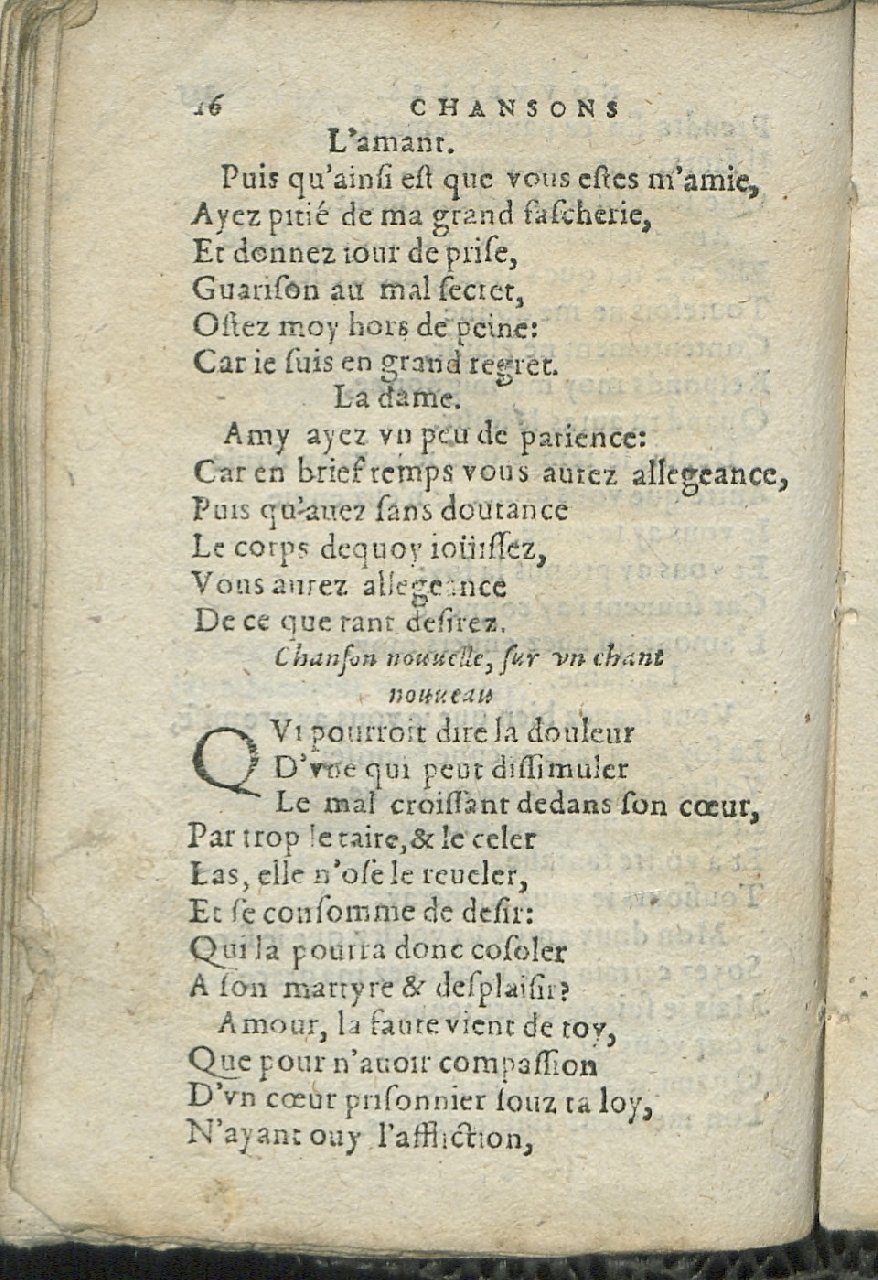 16 CHANSONS
L'amant.
Puis qu'ainſi eſt que vous eſtes m'amie,
Ayez pitié de ma grand faſcherie,
Et donnez tour de priſe,
Guariſon au mal ſecret,
Oſtez moy hors de peine:
Car ie ſuis en grand regret.
La dame.
Amy ayez vn peu de patience:
Car en brief temps vous aurez allegeance,
Puis qu'auez ſans doutance
Le corps dequoy ioüiſſez,
Vous aurez allegeance
De ce que tant deſirez.
Chanſon nouuelle, ſur vn chant
nouueau
QVi pourroit dire la douleur
D'vne qui peut diſſimuler
Le mal croiſſant dedans ſon cœur,
Par trop le taire, & le celer
Las, elle n'oſe le reueler,
Et ſe conſomme de deſir:
Qui la pourra donc coſoler
A ſon martyre & deſplaiſir?
Amour, la faute vient de toy,
Que pour n'auoir compaſſion
D'vn cœur priſonnier ſouz ta loy,
N'ayant ouy l'affliction,